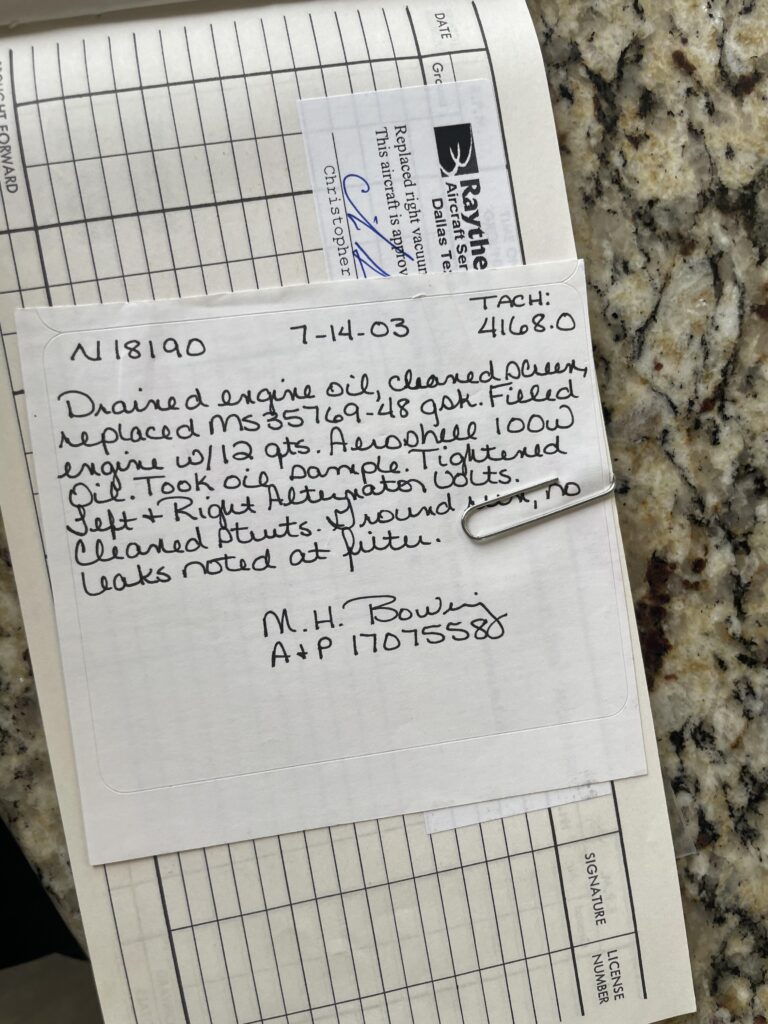 DATE
OUGHT FORWARD
Raythe
Aircraft Ser
Dallas Te
Replaced right vacuum
This aircraft is approv
Christopher
N18190 7-14-03 TACH: 4168.0
Drained engine oil, cleaned screen,
replaced MS35769-48 gsk. Filled
engine w/12 qts. Aeroshell 100W
Oil. Took oil sample. Tightened
Left + Right Alternator bolts.
Cleaned struts. Ground run, no
leaks noted at filter.
M.H.
A+P 1707558
SIGNATURE
LICENSE
NUMBER